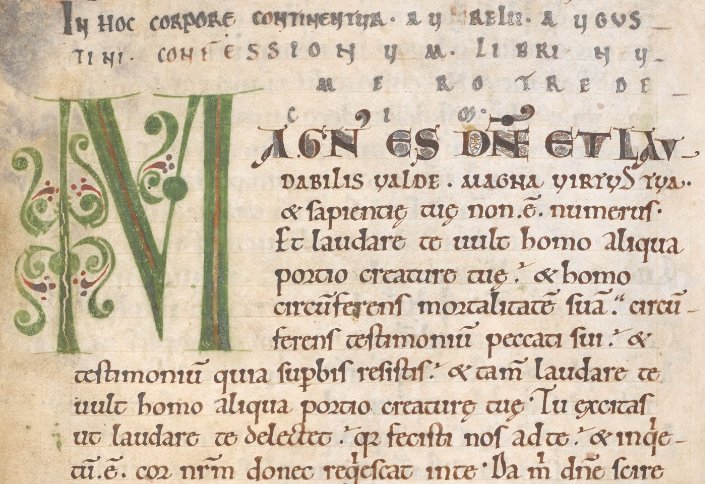 IN HOC CORPORE CONTINENTUR. AURELII. AUGUS-
TINI. CONFESSIONUM. LIBRI NU-
MERO TREDE
CIM.
MAGN' ES DN̄E ET LAU-
DABILIS UALDE. MAGNA UIRTUS TUA.
& sapientię tuę non.ē. numerus.
Et laudare te uult homo aliqua
portio creaturę tuę. & homo
circūferens mortalitatē suā. circū-
ferens testimoniū peccati sui. &
testimoniū quia supbis resistis. & tam̄ laudare te
uult homo aliqua portio creaturę tuę. Tu excitas
ut laudare te delectet. qr fecisti nos ad te. & inqe-
tū.ē. cor nr̄m donec reqescat in te. Da m̄ dn̄e scire